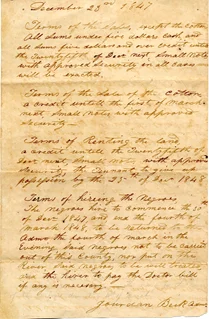 December 23rd 1847
Terms of the Sale, except the Cotton
All sums under five dollars cash and
all sums five dollars and over credit until
the Twenty fifth of Decr next Small Notes
with approved Security in all cases
will be exacted.
Terms of the Sale of the Cotton
a credit until the first of March
next Small Notes with approved
Security
Terms of Renting the land
a credit until the Twenty fifth of
Decr next, Small note with approved
Security, the to give up
possession by the 25th of Decr 1848
Terms of hireing the Negroes
The Negroes hire to commence the
of Decr 1847 and end the fourth of
March 1848, to be returned to
Admr the fourth of March in the
Evening said negroes not to be carried
out of this County, nor put on the
River
and the hirer to pay the Doctor bill
if any is necessary